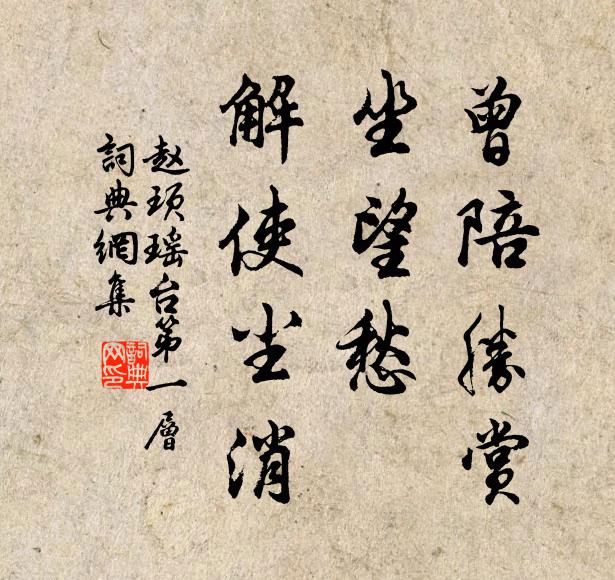 曾陪勝賞
坐望愁
解使尘消
赵顼瑶台第一層
詞典網集
詞典
网印